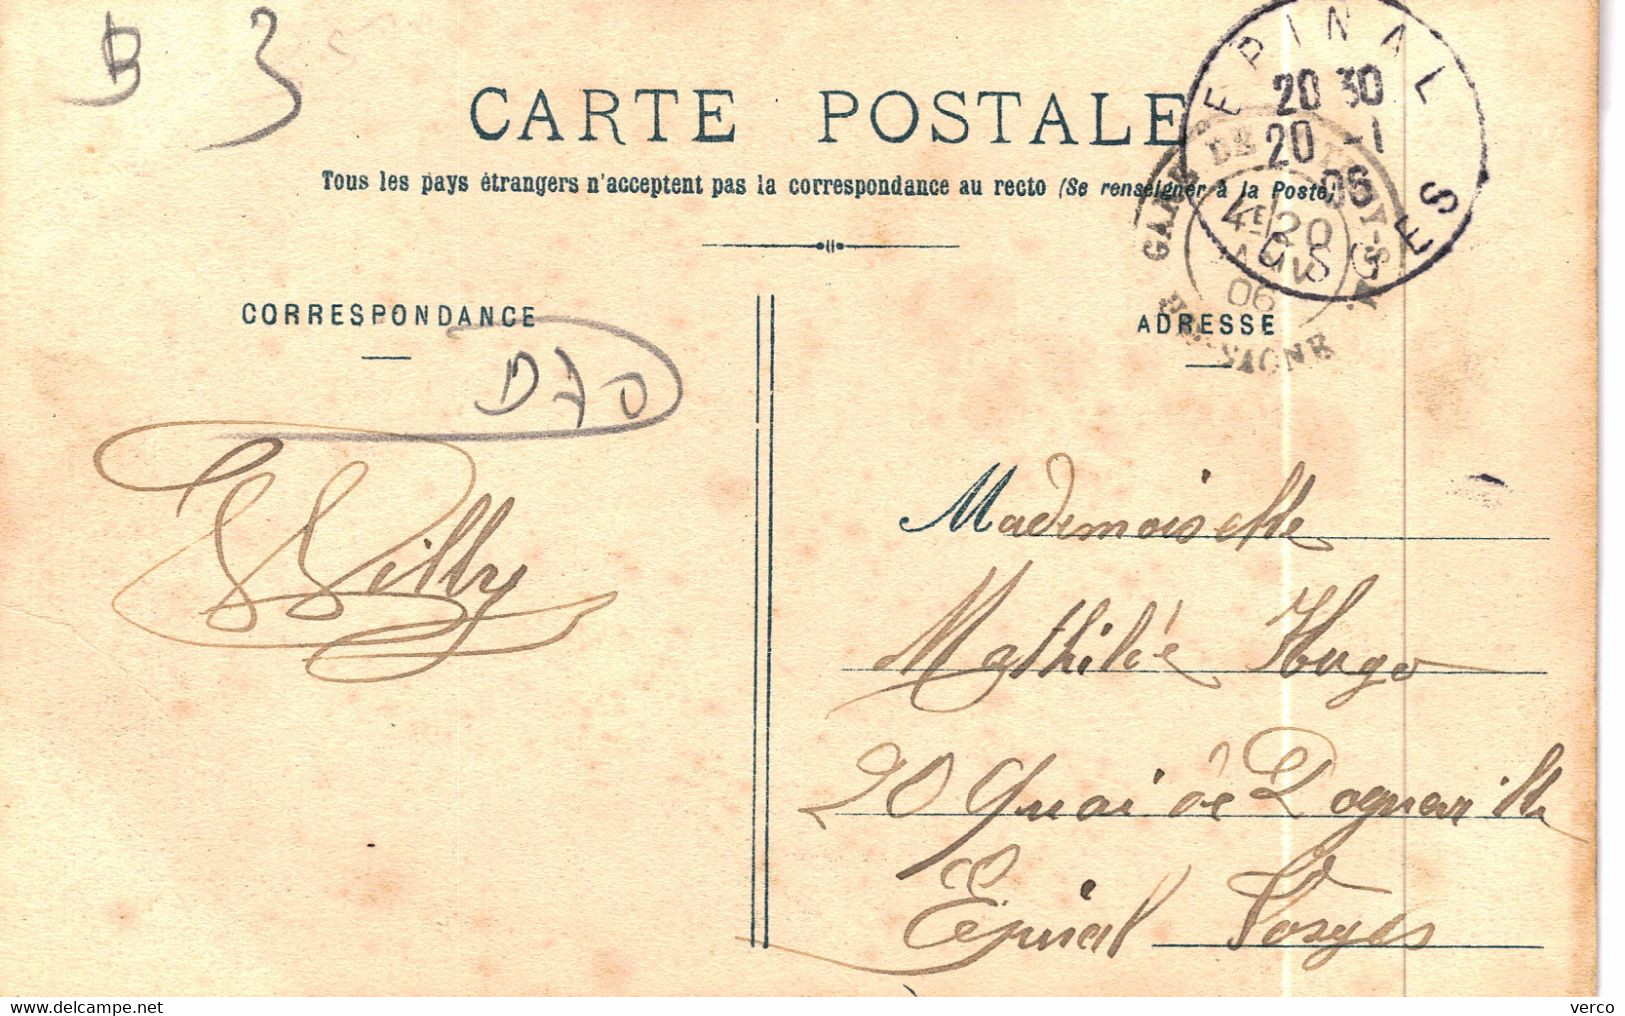 B 3
CARTE POSTALE
Tous les pays étrangers n'acceptent pas la correspondance au recto (Se renseigner à la Poste)
EPINAL
20 30
20 -1
06
VOSGES
GARE DE
4E 20
JANV
06
CORRESPONDANCE
ADRESSE
D70
Willy
Mademoiselle
Mathilde Hugo
20 Quai de Dogneville
Epinal Vosges
delcampe.net
verco